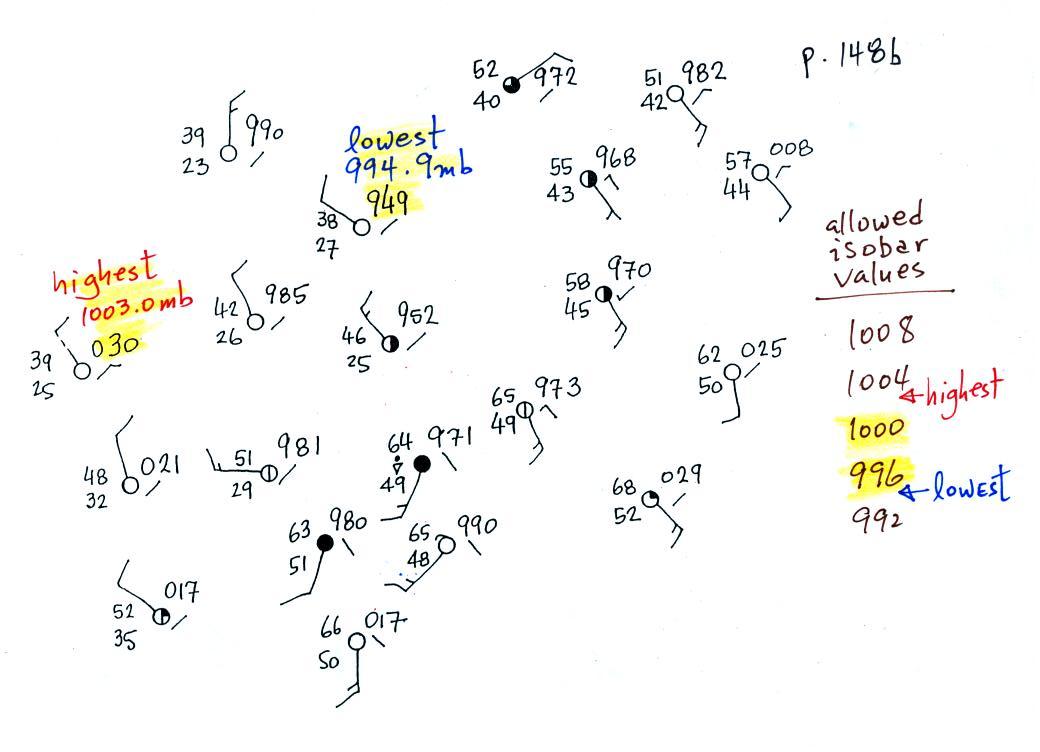 p. 148b
52
972
40
51
982
42
39
990
23
lowest
994.9mb
949
38
27
55
968
43
57
008
44
allowed
isobar
values
1008
1004
highest
1000
996
lowest
992
highest
1003.0mb
030
39
25
42
985
26
46
952
25
58
970
45
62
025
50
65
973
49
48
021
32
51
981
29
64
971
49
68
029
52
63
980
51
65
990
48
52
017
35
66
017
50